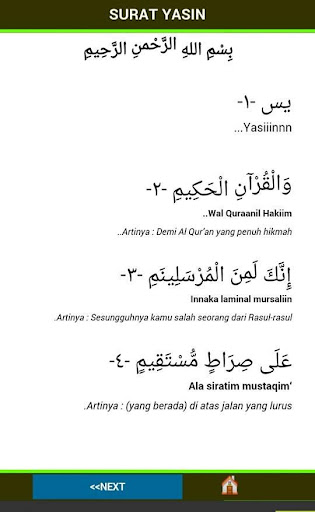 SURAT YASIN
بِسْمِ اللهِ الرَّحْمنِ الرَّحِيمِ
يس -١-
...Yasiiinnn
وَالْقُرْآنِ الْحَكِيمِ -٢-
..Wal Quraanil Hakiim
.Artinya : Demi Al Qur'an yang penuh hikmah
إِنَّكَ لَمِنَ الْمُرْسَلِينَمِ -٣-
Innaka laminal mursaliin
.Artinya : Sesungguhnya kamu salah seorang dari Rasul-rasul
عَلَى صِرَاطٍ مُّسْتَقِيمٍ -٤-
Ala siratim mustaqim‘
.Artinya : (yang berada) di atas jalan yang lurus
<<NEXT